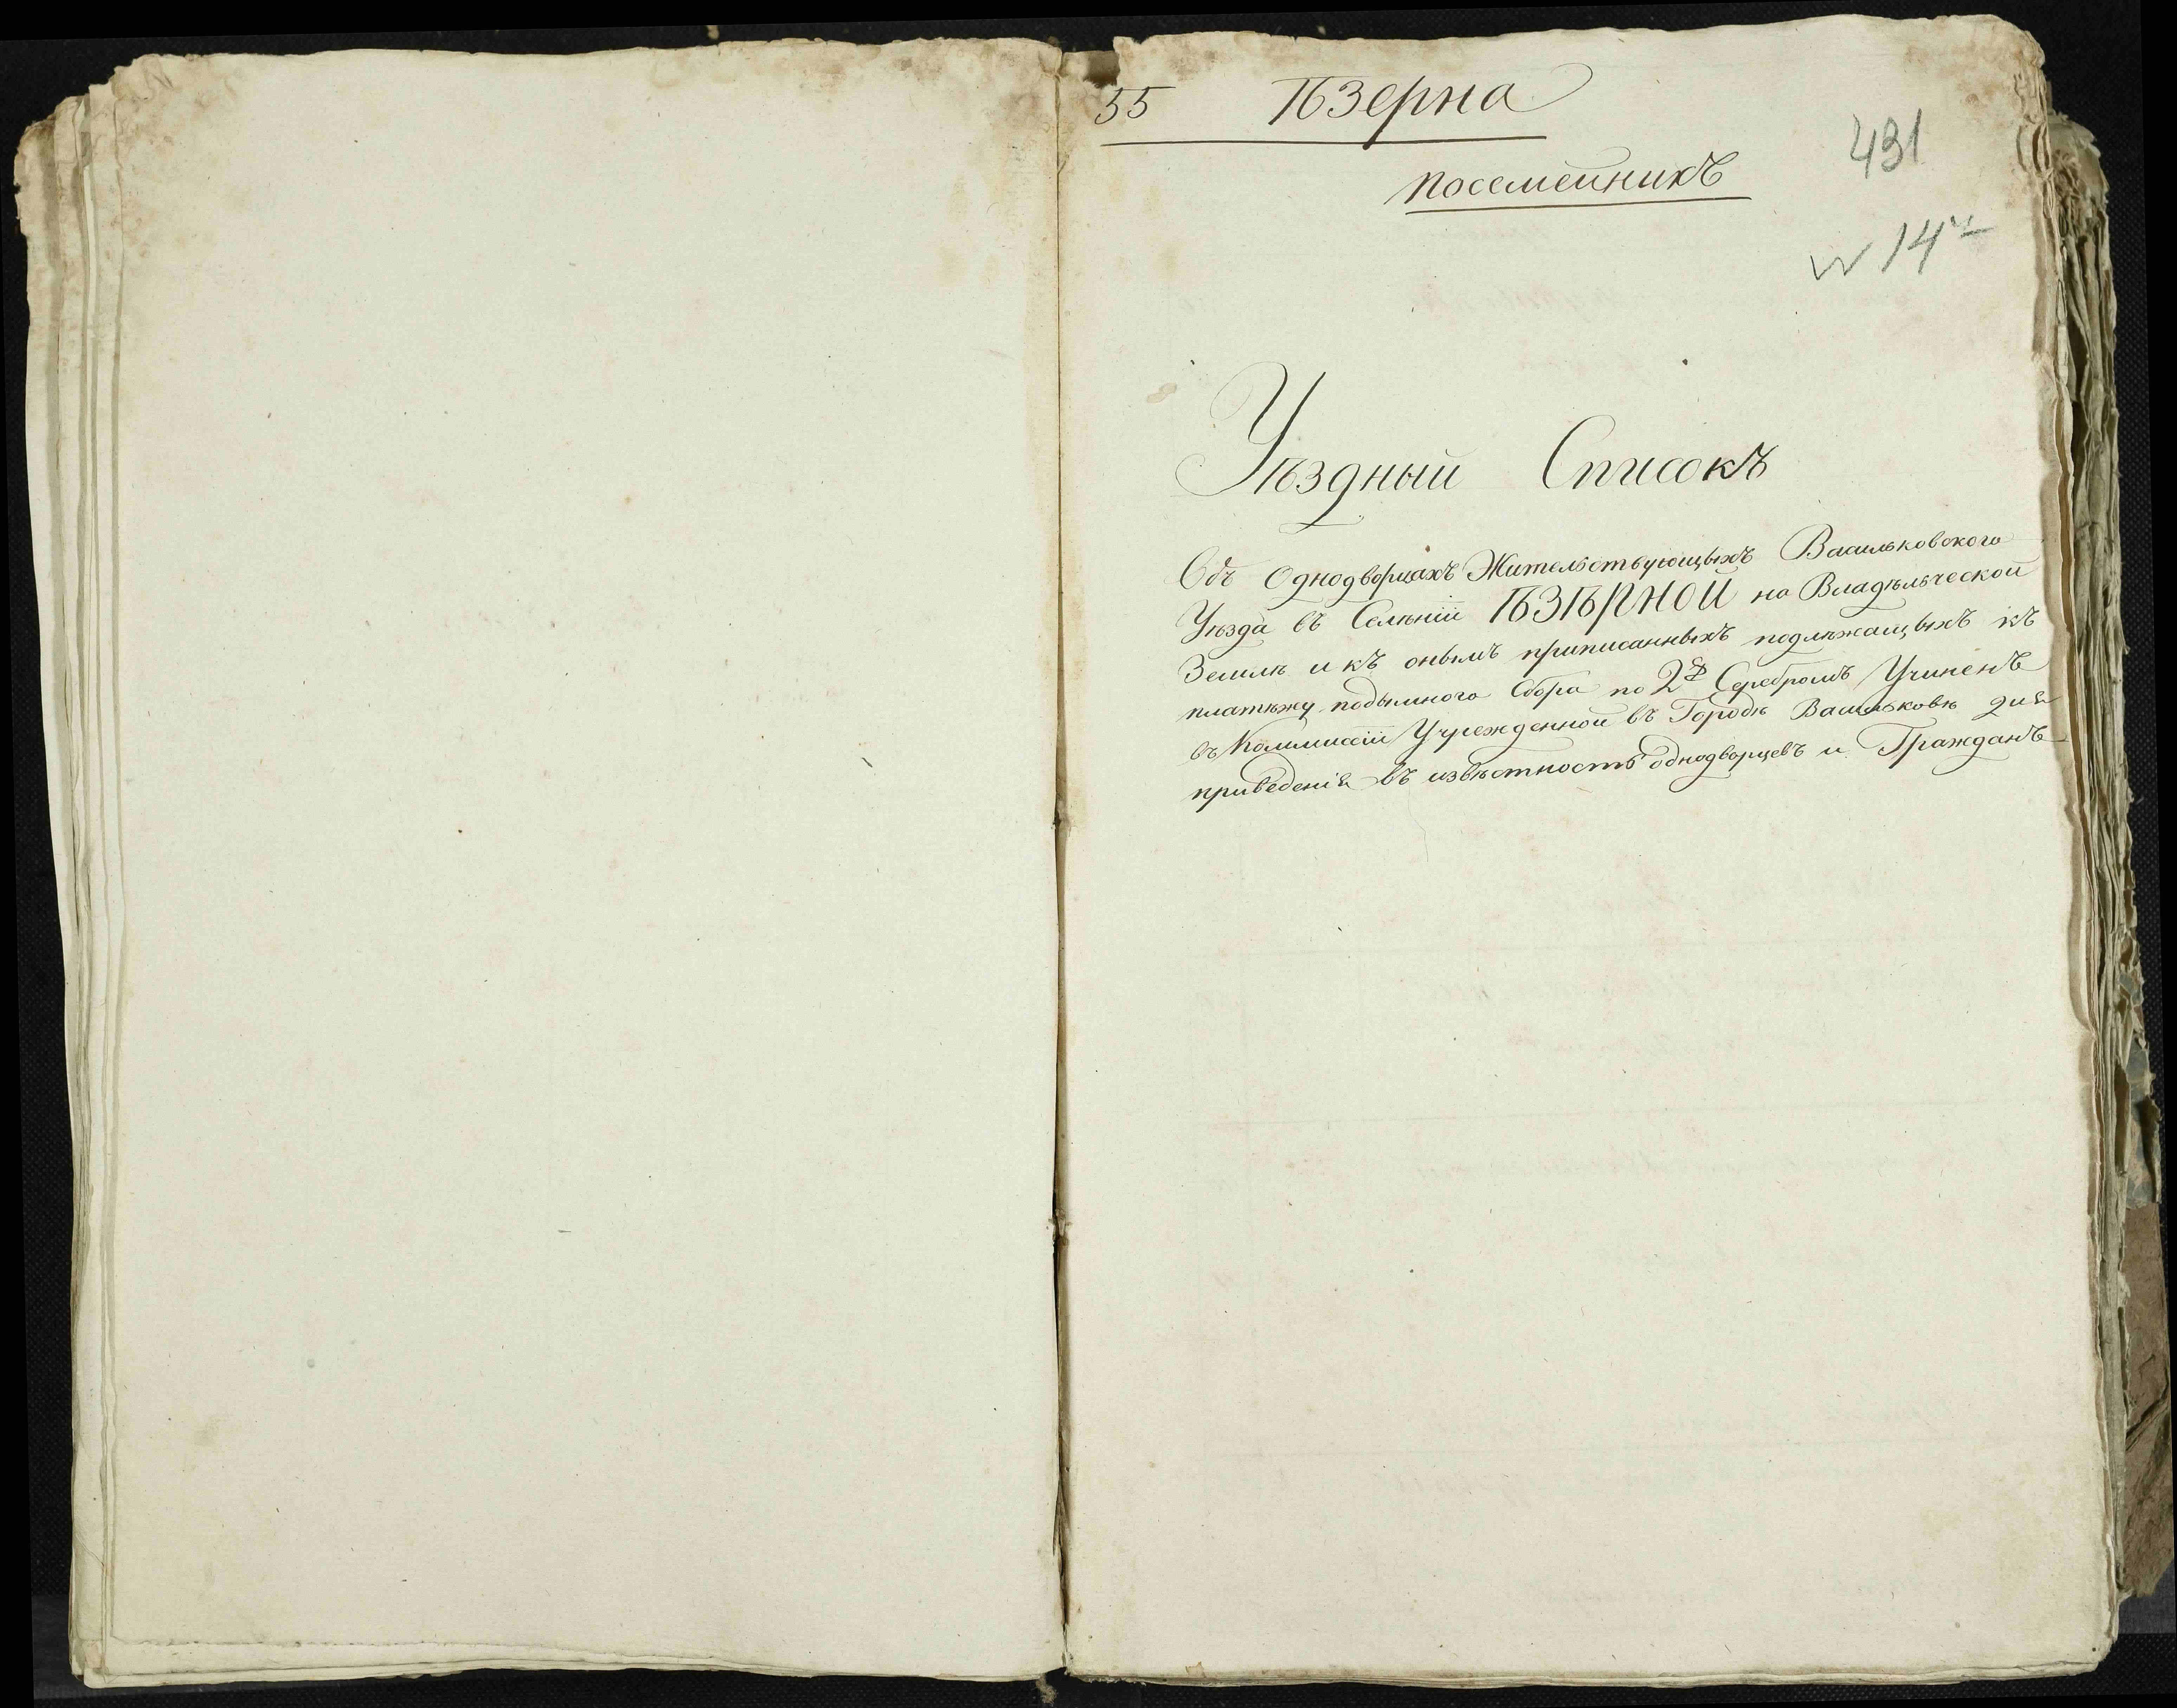 55 Ѣзерна
посемейникъ
491
№ 14й
Уѣздный Списокъ
Объ Однодворцахъ Жительствующыхъ Васильковского
Уѣзда въ Селѣніи ѢЗѢРНОЙ на Владѣльческой
Землѣ и къ онымъ приписанныхъ подлѣжащыхъ къ
платѣжу подымного Сбора по 2 Серебромъ Учиненъ
въ Коммисіи Учрежденной въ Городѣ Васильковѣ для
приведенія въ извѣстность однодворцевъ и Гражданъ